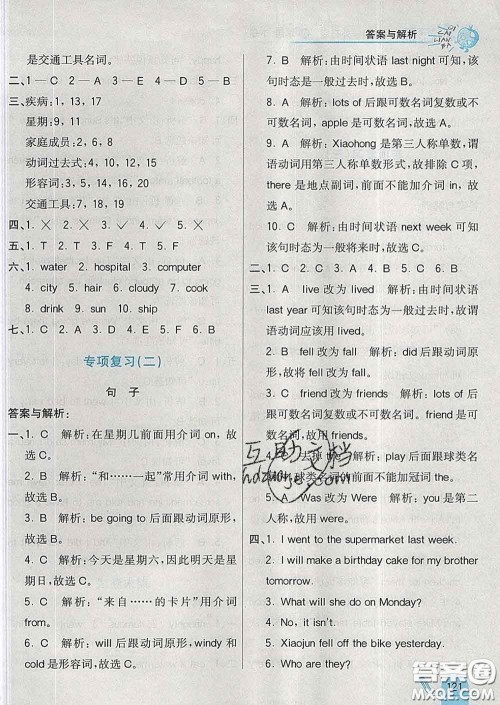 答案与解析
是交通工具名词。
二、1—C 2—A 3—D 4—A 5—B
三、疾病：1，13，17
星期：9，11
家庭成员：2，6，8
动词过去式：4，10，12
形容词：3，5，14，15，16，20
交通工具：7，18，19
四、1. × 2. √ 3. √ 4. × 5. √
五、1. T 2. T 3. F 4. T 5. T
六、1. water 2. hospital 3. computer
4. city 5. hair 6. cloudy 7. cook
8. drink 9. sun 10. ship
七、1. C 2. A 3. E 4. D 5. F 6. B
专项复习(二)
句 子
答案与解析：
一、1. C 解析：在星期几前面用介词 on，故
选 C。
2. B 解析：“和……一起”常用介词 with，
故选 B。
3. B 解析：be going to 后面跟动词原形，
故选 B。
4. C 解析：今天是星期六，因此明天是星
期日，故选 C。
5. C 解析：“来自……的卡片”用介词
from，故选 C。
6. B 解析：will 后跟动词原形，windy 和
cold 是形容词，故选 B。
7. B 解析：由时间状语 last night 可知，该
句时态是一般过去时，故选 B。
8. A 解析：lots of 后跟可数名词复数或不
可数名词，apple 是可数名词，故选 A。
9. A 解析：Xiaohong 是第三人称单数，谓
语动词用第三人称单数形式，故排除 C 项，
there 是地点副词，前面不能加介词 in，故
选 A。
10. C 解析：由时间状语 next week 可知
该句时态为一般将来时，故选 C。
二、1. C 2. D 3. B 4. E 5. A
三、1. A live 改为 lived 解析：由时间状语
last year 可知该句时态为一般过去时，故
谓语动词应该用 lived。
2. B fell 改为 fall 解析：did 后跟动词原
形，将 fell 改为 fall。
3. C friend 改为 friends 解析：lots of 后
跟可数名词复数或不可数名词，friend 是可
数名词，故用 friends。
4. 去掉 the 解析：play 后面跟球类名
词时，球类名词前不能加冠词 the。
5. A Was 改为 Were 解析：you 是第二
人称，故用 were。
四、1. I went to the supermarket last week.
2. I will make a birthday cake for my brother
tomorrow.
3. What will she do on Monday?
4. I helped my mum cook.
5. Xiaojun fell off the chair.
6. Who are they?
121